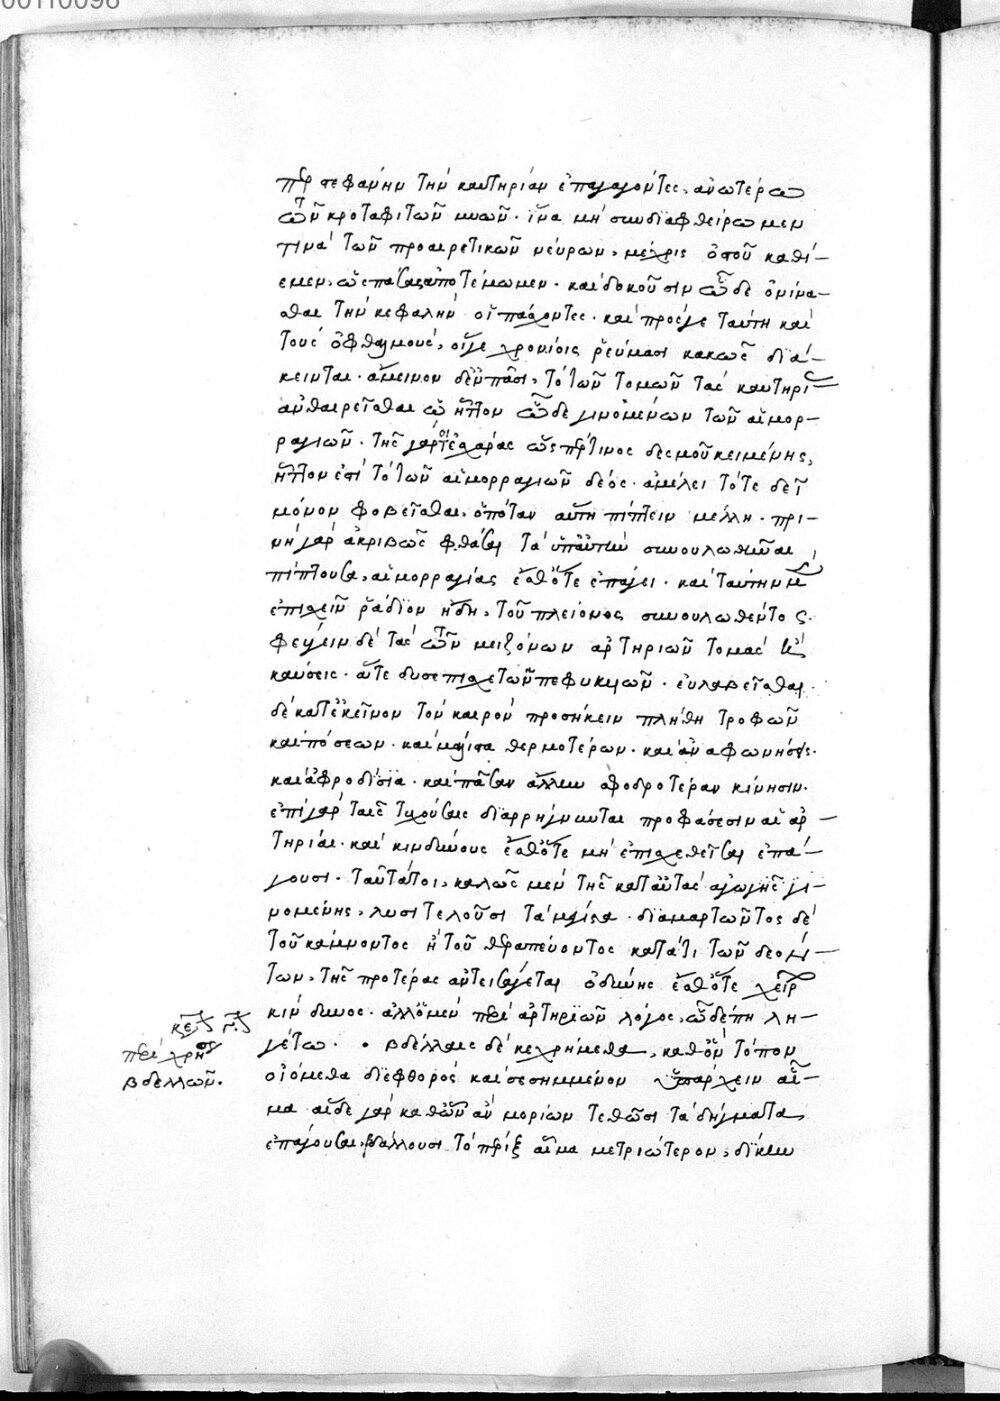 00110098
περ στεφάνην τὴν καυτηρίαν ἐπαγαγόντες, ἀνωτέρω
τῶν κροταφιτῶν μυῶν· ἵνα μὴ συνδιαφθείρωμεν
τινὰ τῶν προαιρετικῶν νεύρων, μέχρις ὀστοῦ καθί-
εμεν, ὥσπερ ἀποτέμωμεν· καὶ δοκοῦσιν ὧδε ὀνίνα-
σθαι τὴν κεφαλὴν οἱ πάσχοντες· καὶ προσέγε ταύτη καὶ
τοὺς ὀφθαλμούς, οἵγε χρονίοις ῥεύμασι κακῶς διά-
κεινται· ἄμεινον δ' ἐν πᾶσι, τὸ τῶν τομῶν τὰς καυτηρι-
ανθαιρεῖσθαι ὡς ἧττον ὧδε γινομένων τῶν αἱμορ-
ραγιῶν· τῆς γὰρ ἐσχάρας ὥσπερ τινος δεσμοῦ κειμένης,
ἧττον ἐστὶ τὸ τῶν αἱμορραγιῶν δέος· ἀμέλει τότε δεῖ
μόνον φοβεῖσθαι, ὁπόταν αὕτη πίπτειν μέλλη· πρι-
νὴ γὰρ ἀκριβῶς φθάσαι τὰ ὑπ' αὐτὴν συνουλωθῆναι
πίπτουσα, αἱμορραγίας ἔσθ' ὅτε ἐπάγει· καὶ ταύτην μὲν
ἐπισχεῖν ῥάδιον ἤδη, τοῦ πλείονος συνουλωθέντος.
φεύγειν δὲ τὰς τῶν μειζόνων ἀρτηριῶν τομὰς καὶ
καύσεις· ἅτε δυσεπισχέτων πεφυκυιῶν· εὐλαβεῖσθαι
δὲ κατ' ἐκεῖνον τὸν καιρὸν προσήκειν πλήθη τροφῶν
καὶ πόσεων· καὶ μάλιστα θερμοτέρων· καὶ ἀναφωνήσεις·
καὶ ἀφροδίσια· καὶ πᾶσαν ἄλλην σφοδροτέραν κίνησιν·
ἐπὶ γὰρ ταῖς τυχούσαις διαρρήγνυνται προφάσεσιν αἱ ἀρ-
τηρίαι· καὶ κινδύνους ἔσθ' ὅτε μὴ ἐπισχεθεῖσαι ἐπά-
γουσι· ταῦτά τοι, καλῶς μὲν τῆς κατ' αὐτὰς ἀγωγῆς γι-
νομένης, λυσιτελοῦσι τὰ μάλιστα· διαμαρτῶντος δὲ
τοῦ κάμνοντος ἢ τοῦ θεραπεύοντος κατά τι τῶν δεόν-
των, τῆς προτέρας ἀντεισάγεται ὀδύνης ἔσθ' ὅτε χεῖρ
κίνδυνος· ἀλλ' ὁ μὲν περὶ ἀρτηριῶν λόγος, ὧδέ πη λη-
κεφ. γ.
γέτω. • βδέλλαις δὲ κεχρήμεθα, καθ' ὃν τόπον
περὶ χρήσεως
οἰόμεθα διεφθορὸς καὶ σεσημμένον ὑπάρχειν αἷ-
βδελλῶν.
μα αἵδε γὰρ καθ' ὧν ἂν μορίων τεθῶσι τὰ δήγματα
ἐπάγουσαι, βδάλλουσι τὸ πέριξ αἷμα μετριώτερον, δίκην